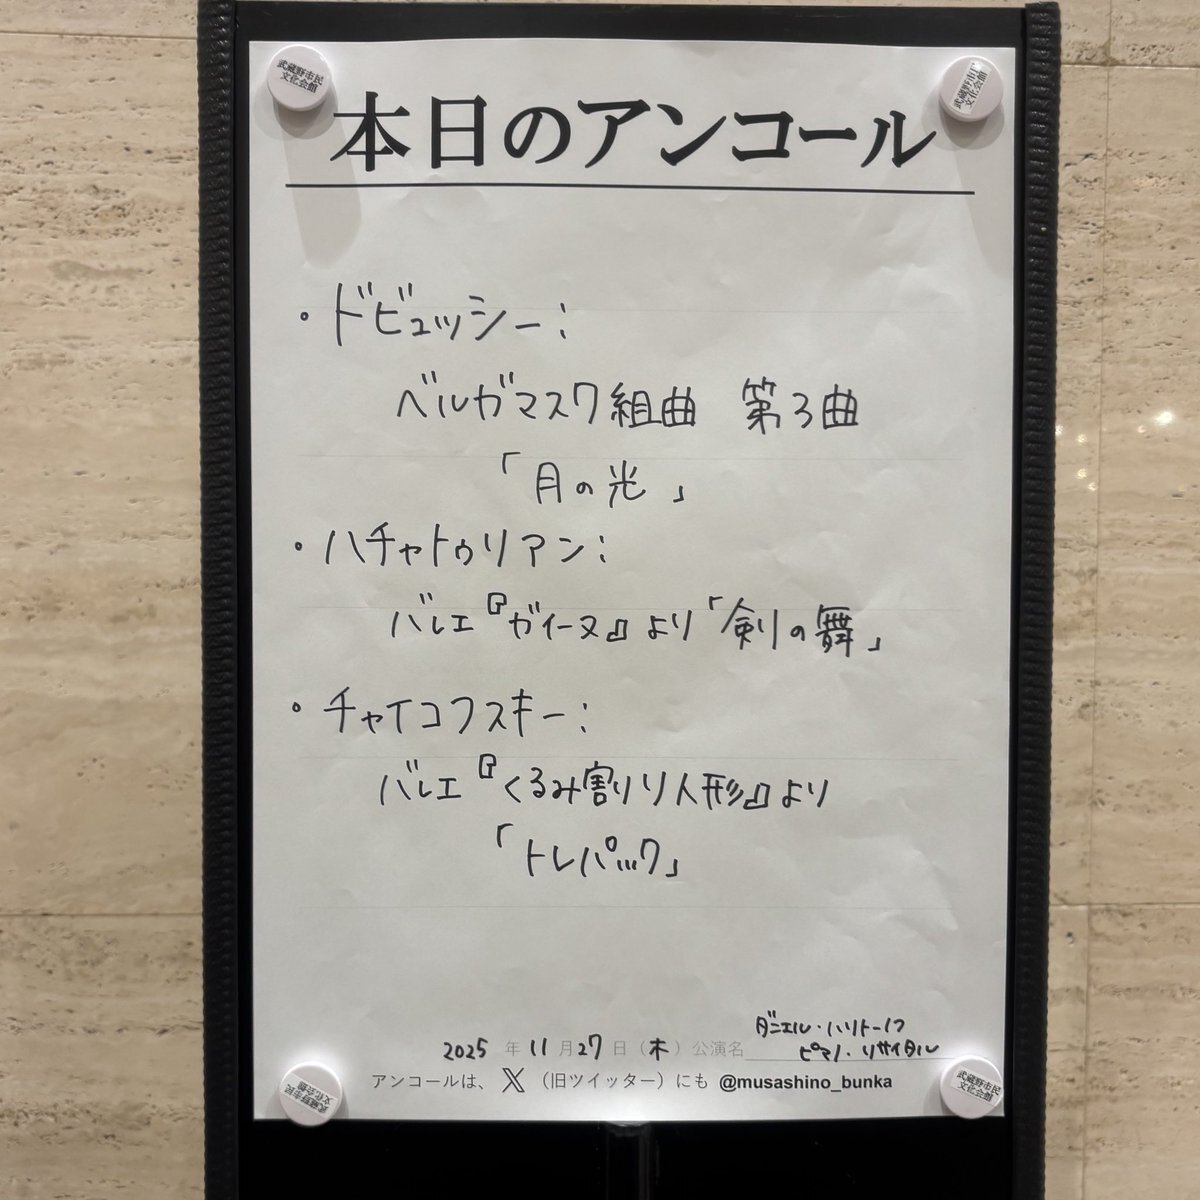 武蔵野市民
文化会館
武蔵野市民
文化会館
本日のアンコール
・ドビュッシー:
ベルガマスク組曲 第3曲
「月の光」
・ハチャトゥリアン:
バレエ『ガイーヌ』より「剣の舞」
・チャイコフスキー:
バレエ『くるみ割り人形』より
「トレパック」
ダニエル・ハリトーノフ
2025 年 11 月 27 日(木)公演名 ピアノ・リサイタル
アンコールは、X(旧ツイッター)にも @musashino_bunka
武蔵野市民
文化会館
武蔵野市民
文化会館